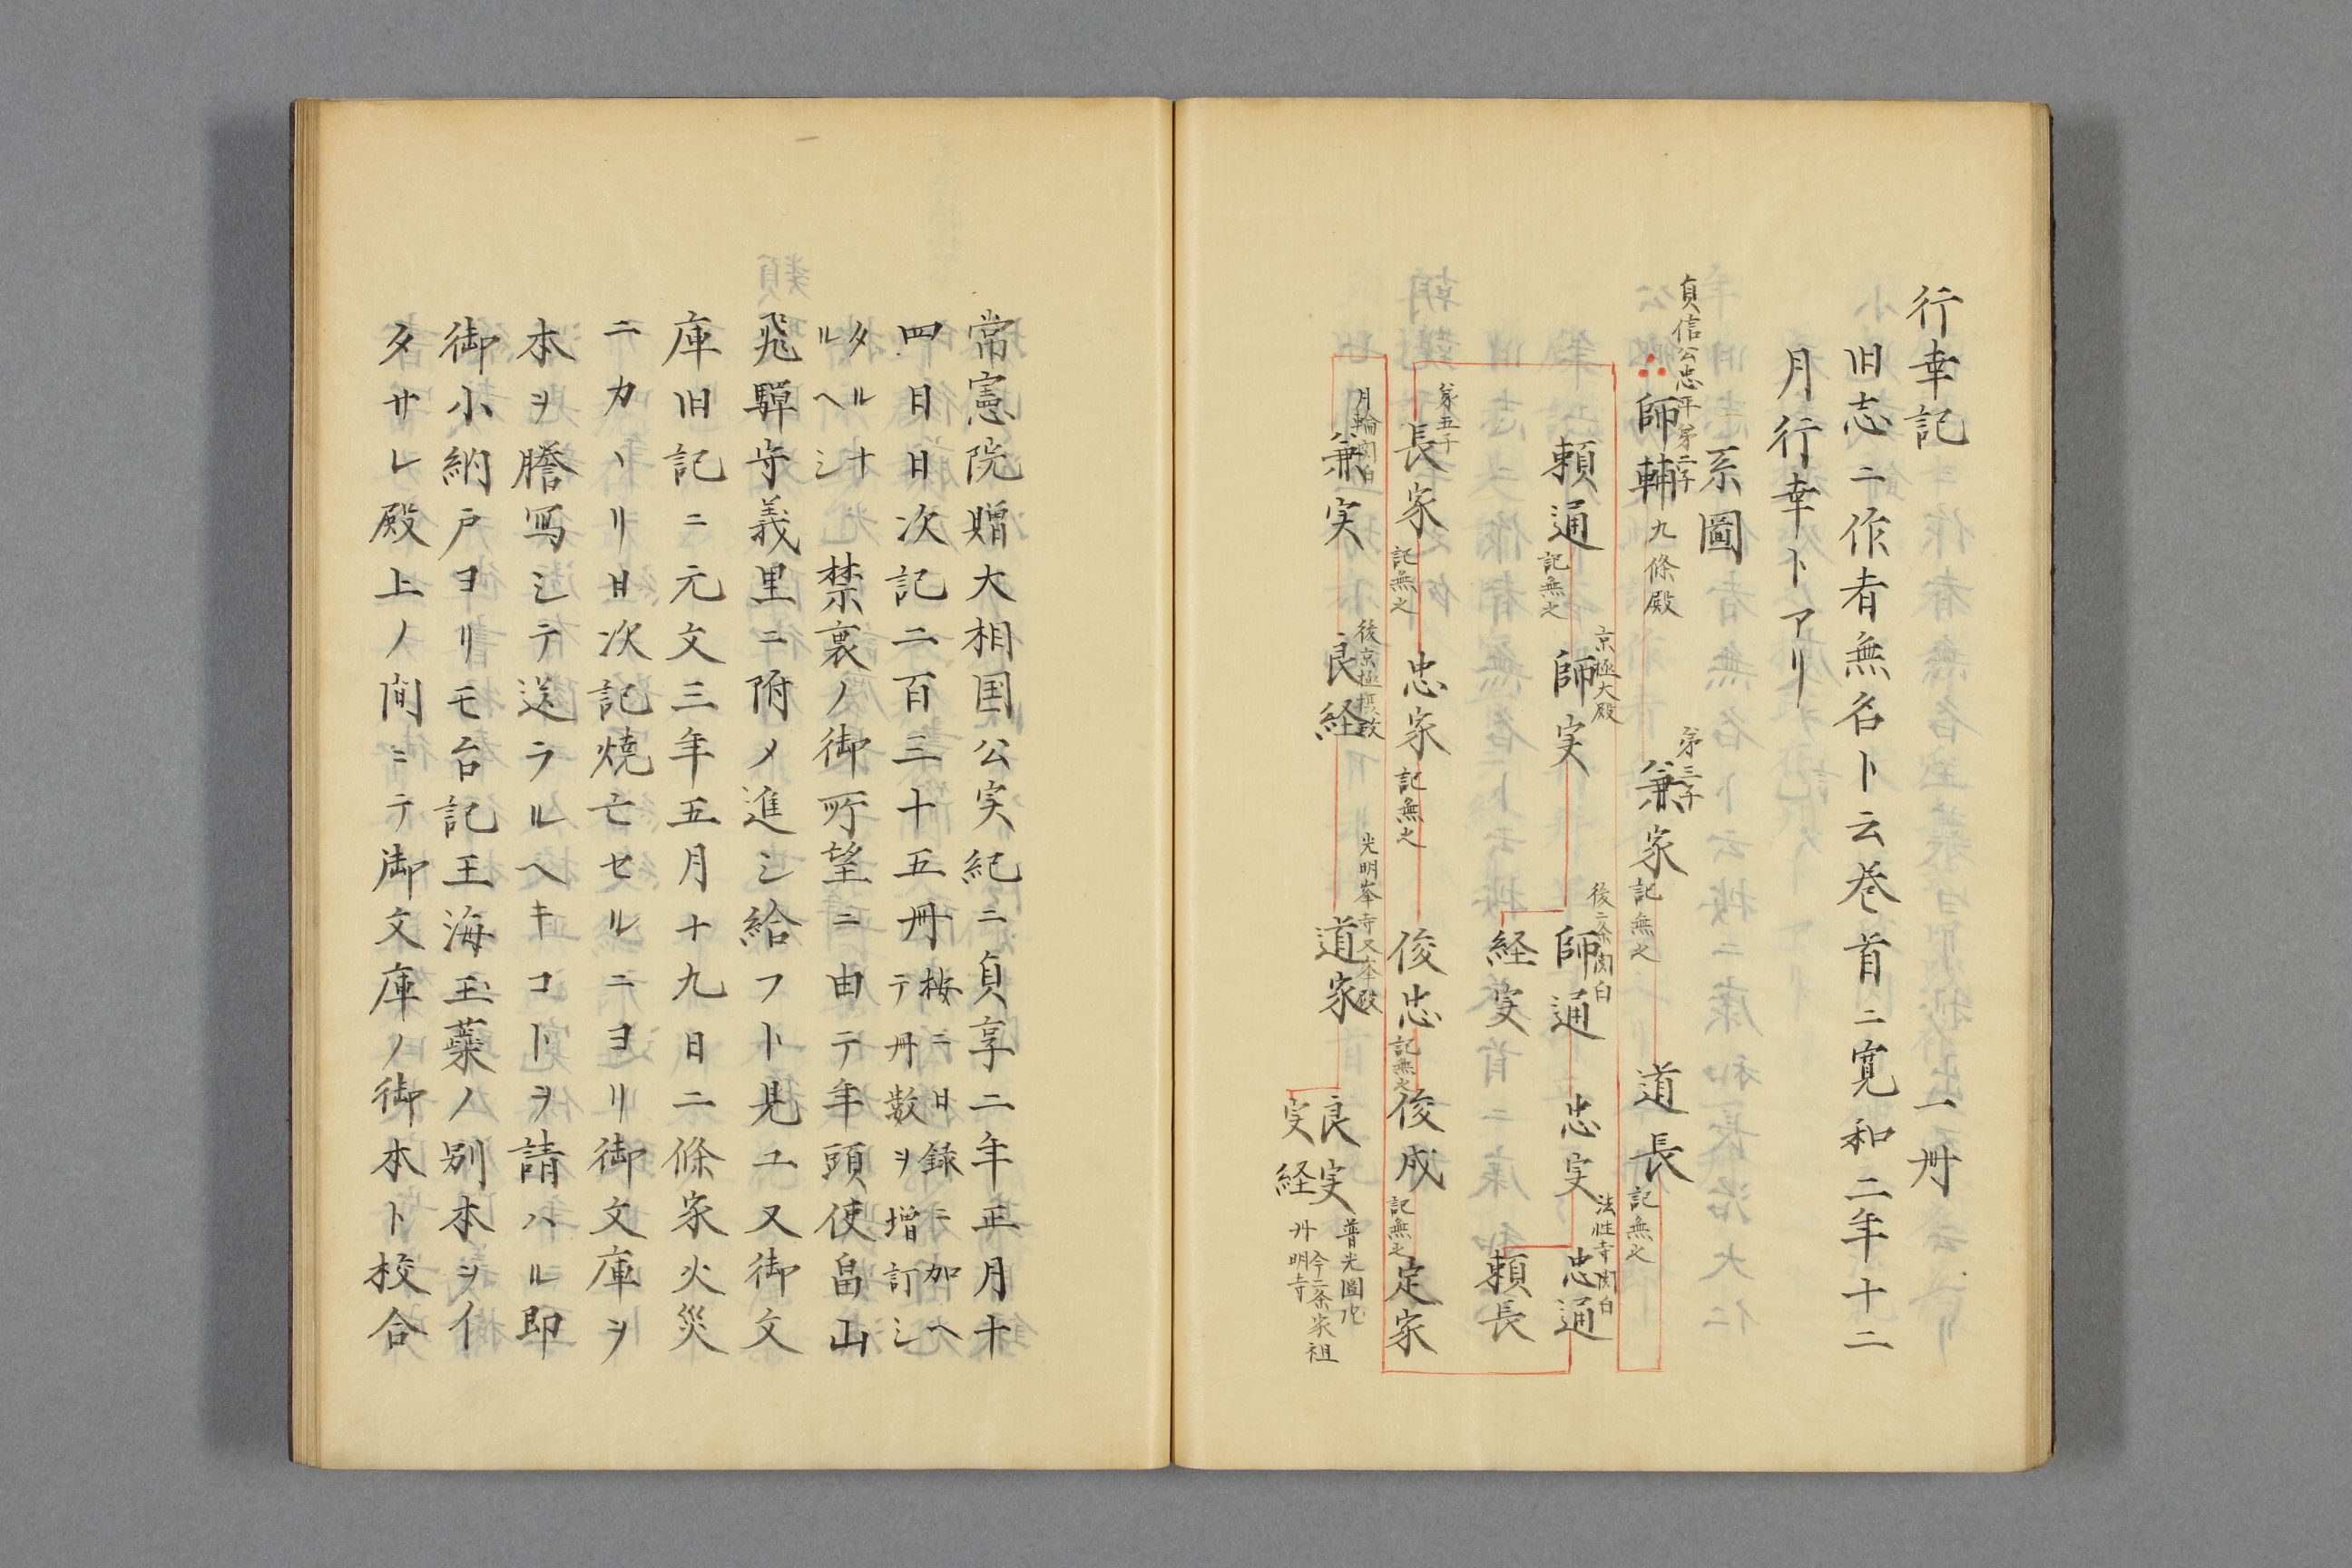 行幸記　一冊
旧志ニ作者無名ト云巻首ニ寛和二年十二
月行幸トアリ
系圖
貞信公忠平第二子
師輔九條殿
第三子
兼家記無之
道長記無之
頼通記無之
京極大殿
師実
後二条関白
師通
忠実
法性寺関白
忠通
経実
頼長
第五子
長家記無之
忠家記無之
俊忠記無之
俊成記無之
定家
月輪関白
兼実
後京極摂政
良経
光明峯寺又峯殿
道家
良実普光園院
今二条家祖
実経
常憲院贈大相国公実紀ニ貞享二年正月十
四日日次記二百三十五冊按ニ日録ニ加ヘ
テ冊数ヲ増訂シ
タルナ
ルヘシ
禁裏ノ御所望ニ由テ年頭使畠山
飛騨守義里ニ附メ進シ給フト見ユ又御文
庫旧記ニ元文三年五月十九日二條家火災
ニカヽリ日次記焼亡セルニヨリ御文庫ヲ
本ヲ謄写シテ送ラルヘキコトヲ請ハル即
御小納戸ヨリモ台記王海玉蘂ノ別本ヲイ
タサレ殿上ノ間ニテ御文庫ノ御本ト校合